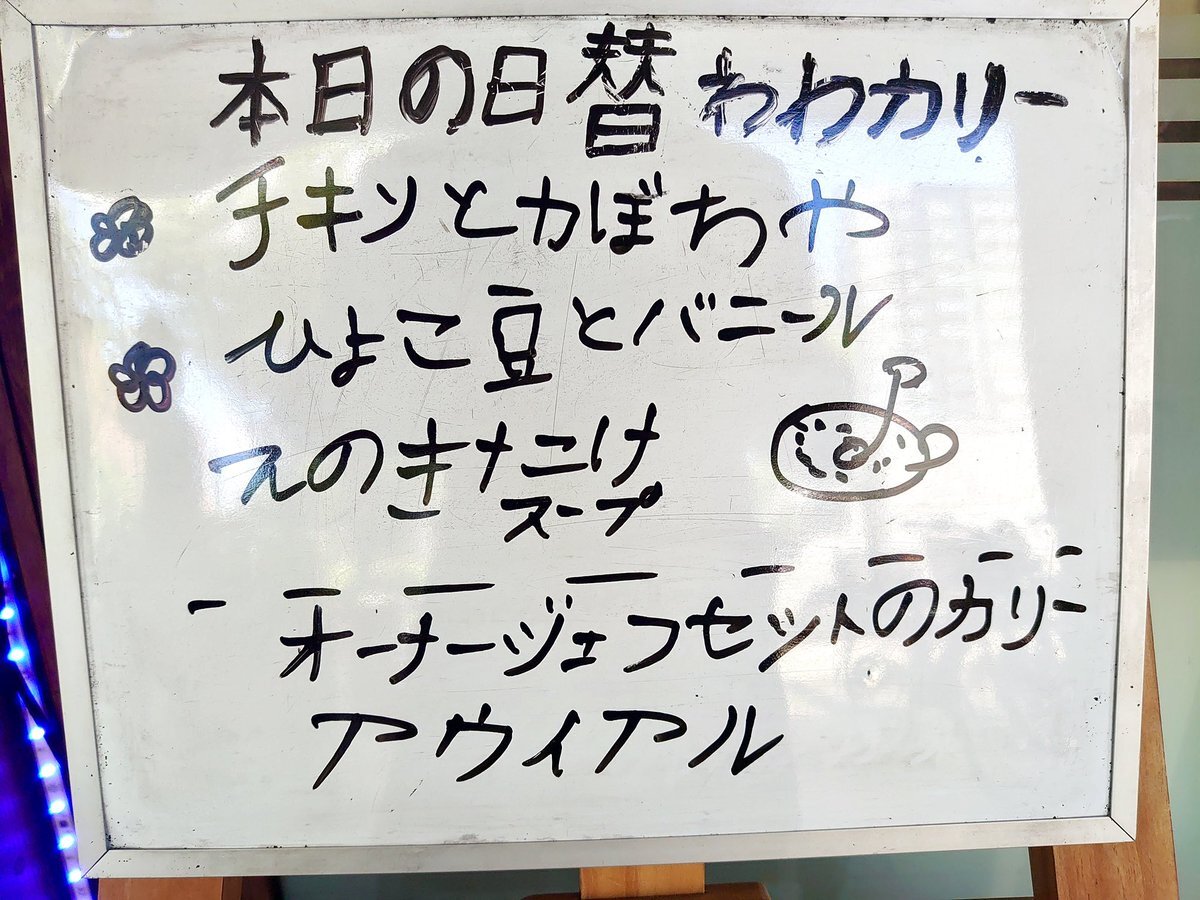 本日の日替わわカリー
チキソとカぼちや
ひよこ豆とバニール
えのきたこけ
スープ
オーナージェフセットのカリー
アウィアル